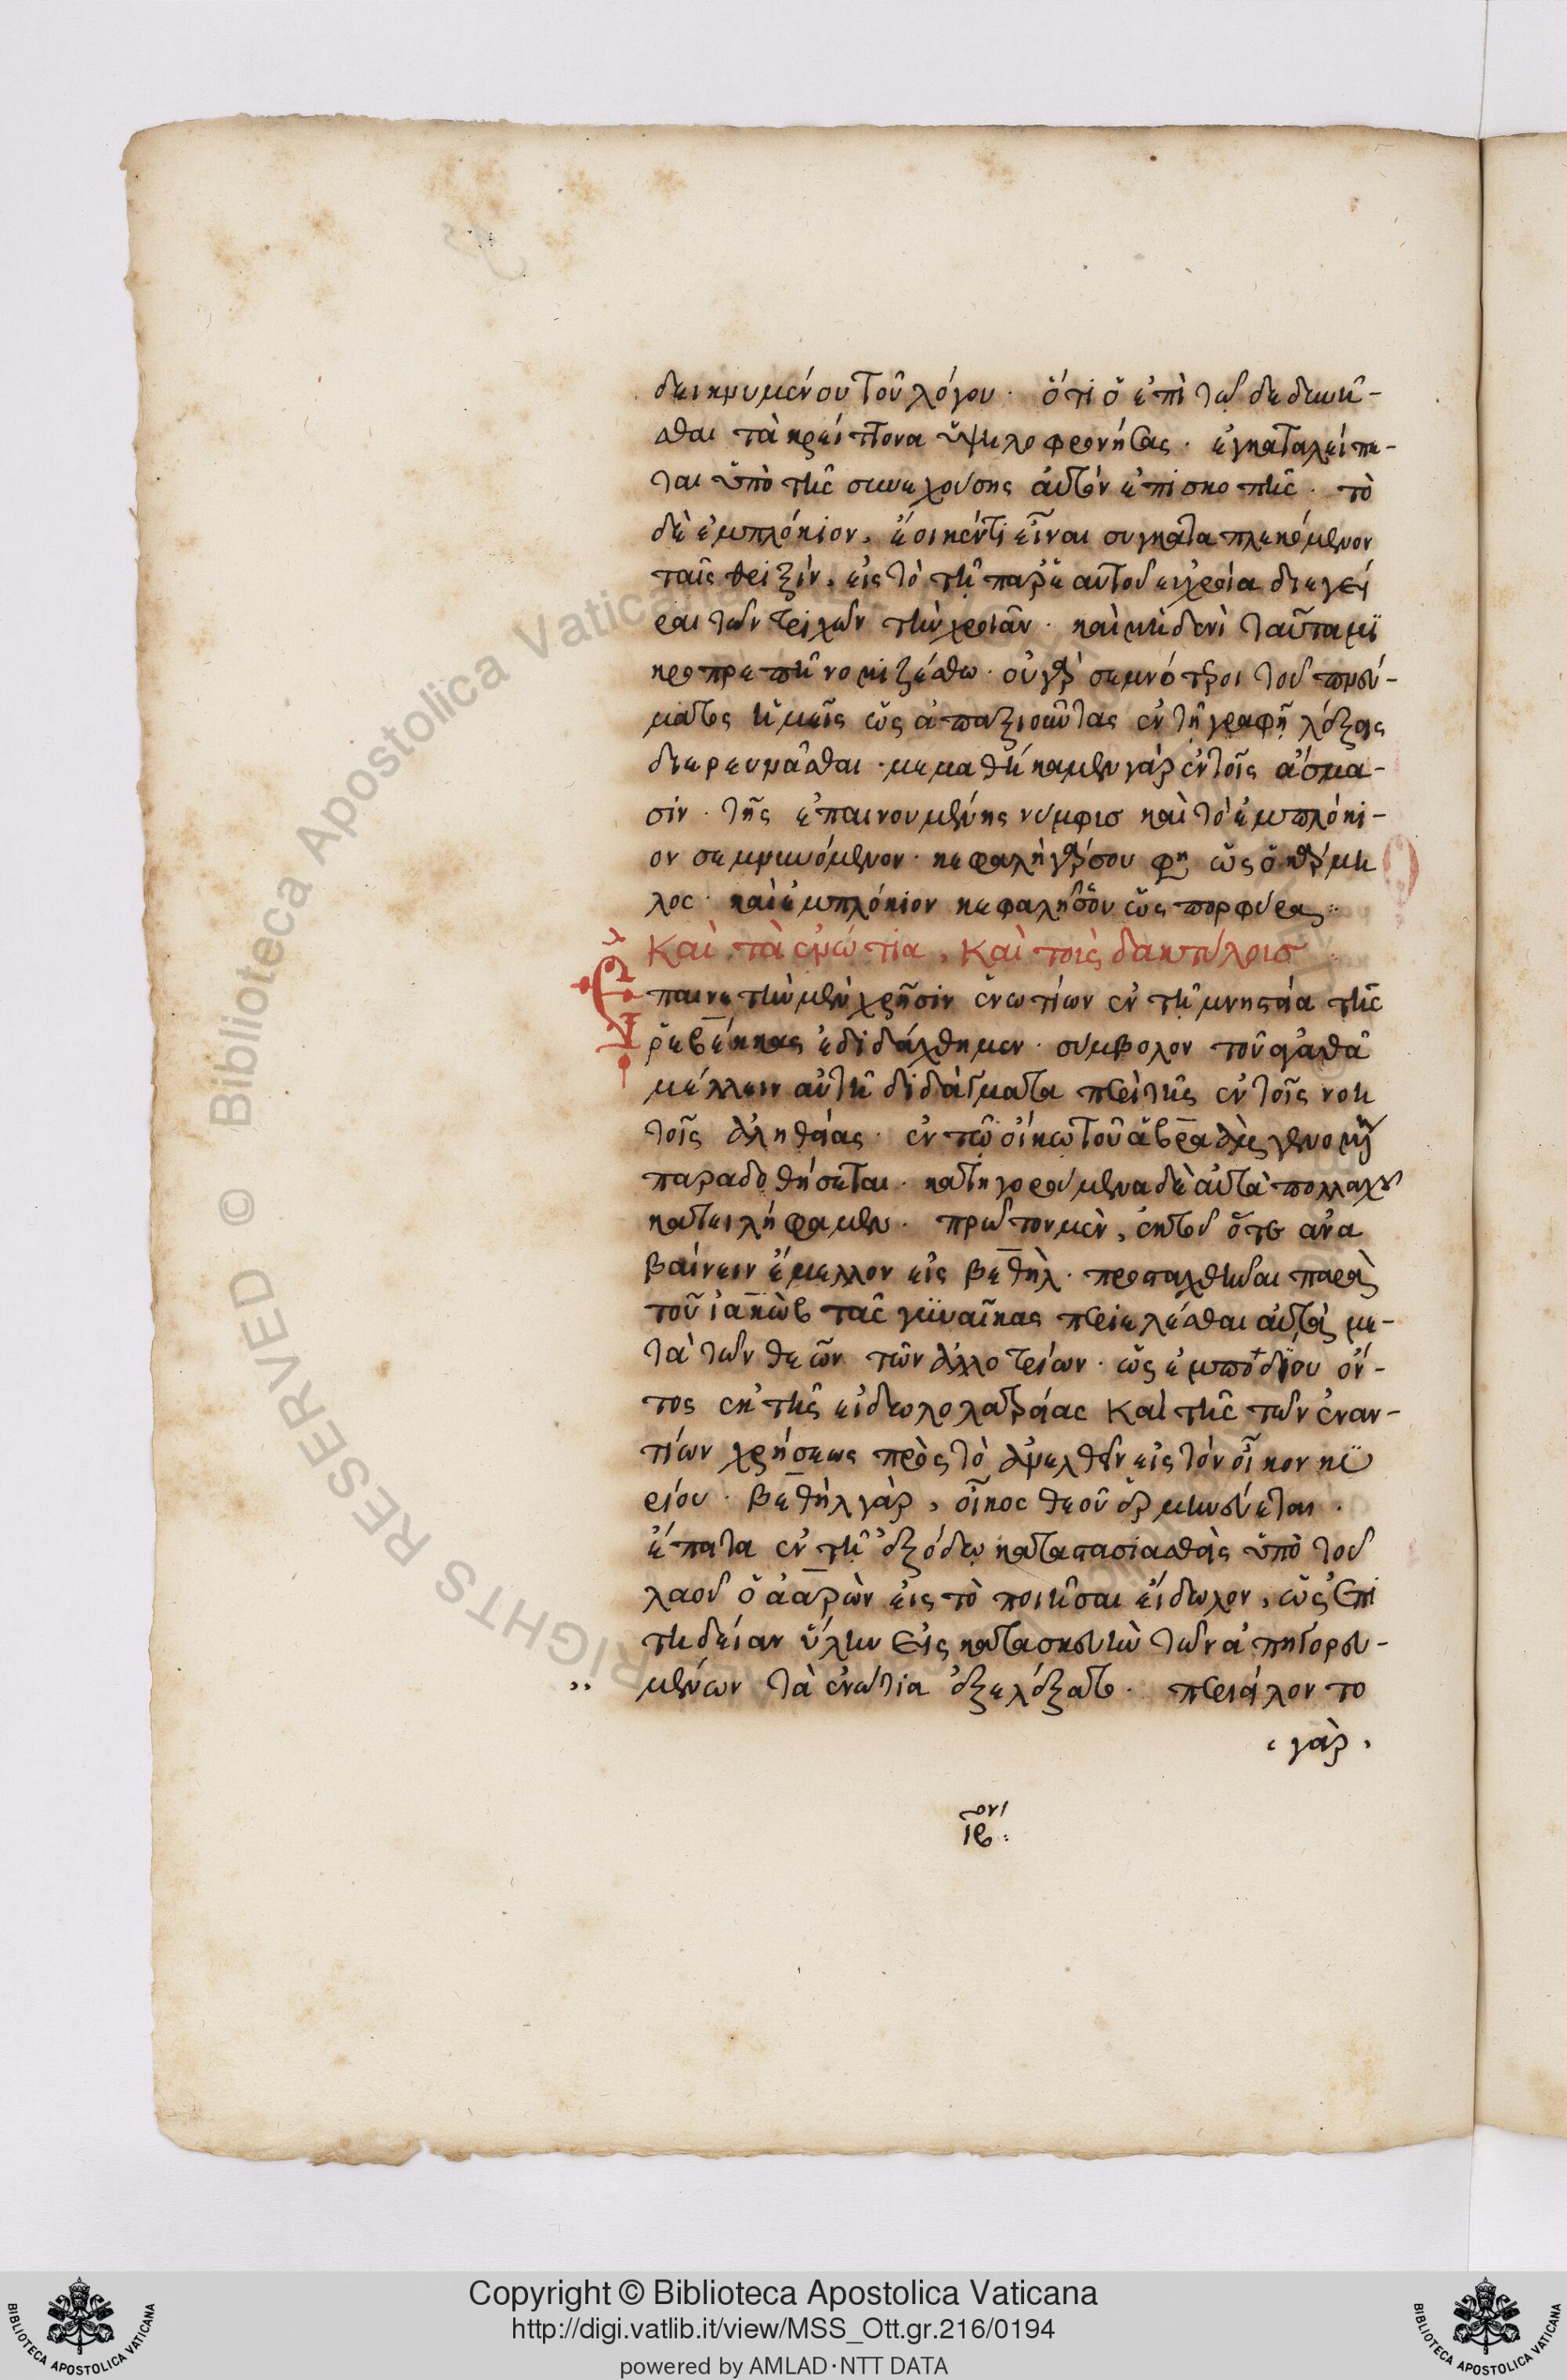 δεικνυμένου τοῦ λόγου· ὅτι ὁ ἐπὶ τῶ δεδειπνῆ-
σθαι τὰ κρείττονα ὑψηλοφρονήσας· ἐγκαταλείπε-
ται ὑπὸ τῆς συνεχούσης αὐτὸν ἐπισκοπῆς· τὸ
δὲ ἐμπλόκιον, ἔοικέ τι εἶναι συγκαταπλεκόμενον
ταῖς θριξὶν, εἰς τὸ τῆ παρ' ἑαυτοῦ εὐχροία διεγεί
ραι τῶν τριχῶν τὴν χροιὰν· καὶ μηδενὶ ταῦτα μι
κροπρεπῆ νομιζέσθω· οὐ γὰρ σεμνότεροι τοῦ πνεύ-
ματος ἡμεῖς ὡς ἀπαξιοῦντας ἐν τῆ γραφῆ λέξεις
διερευνᾶσθαι· μεμαθήκαμεν γὰρ ἐν τοῖς ἄσμα-
σιν· τῆς ἐπαινουμένης νύμφης καὶ τὸ ἐμπλόκι-
ον σεμνυνόμενον· κεφαλὴ γάρ σου φη ὡς ὁ κάρμη
λος· καὶ ἐμπλόκιον κεφαλῆς σου ὡς πορφύρας:
Καὶ τὰ ἐνώτια, καὶ τοὺς δακτυλίους
παινε τὴν μὲν χρῆσιν ἐνωτίων ἐν τῆ μνηστεία τῆς
ῥεβέκκας ἐδιδάχθημεν· σύμβολον τοῦ
μέλλειν αὐτῆ διδάγματα περὶ τῆς ἐν τοῖς νοη
τοῖς ἀληθείας· ἐν τῶ οἴκω τοῦ ἀβραὰμ γενομένη
παραδοθήσεται· κατηγορούμενα δὲ αὐτὰ πολλαχοῦ
κατειλήφαμεν· πρῶτον μὲν, ὅτε ἀνα
βαίνειν ἔμελλον εἰς βεθὴλ· προσταχθῆναι παρὰ
τοῦ ἰακὼβ τὰς γυναῖκας περιελέσθαι αὐτὰ με-
τὰ τῶν θεῶν τῶν ἀλλοτρίων· ὡς ἐμποδίου ὄν-
τος ἐκ τῆς εἰδωλολατρείας καὶ τῆς τῶν ἐναν-
τίων χρήσεως πρὸς τὸ ἀνελθεῖν εἰς τὸν οἶκον κυ
ρίου· βεθὴλ γὰρ, οἶκος θεοῦ ἑρμηνεύεται·
ἔπειτα ἐν τῆ ἐξόδω καταστασιασθεὶς ὑπὸ τοῦ
λαοῦ ὁ ἀαρὼν εἰς τὸ ποιῆσαι εἴδωλον, ὡς ἐπι
τηδείαν ὕλην εἰς κατασκευὴν τῶν ἀπηγορευ-
μένων τὰ ἐνώτια ἐξελέξατο· περιεῖλον το
γὰρ